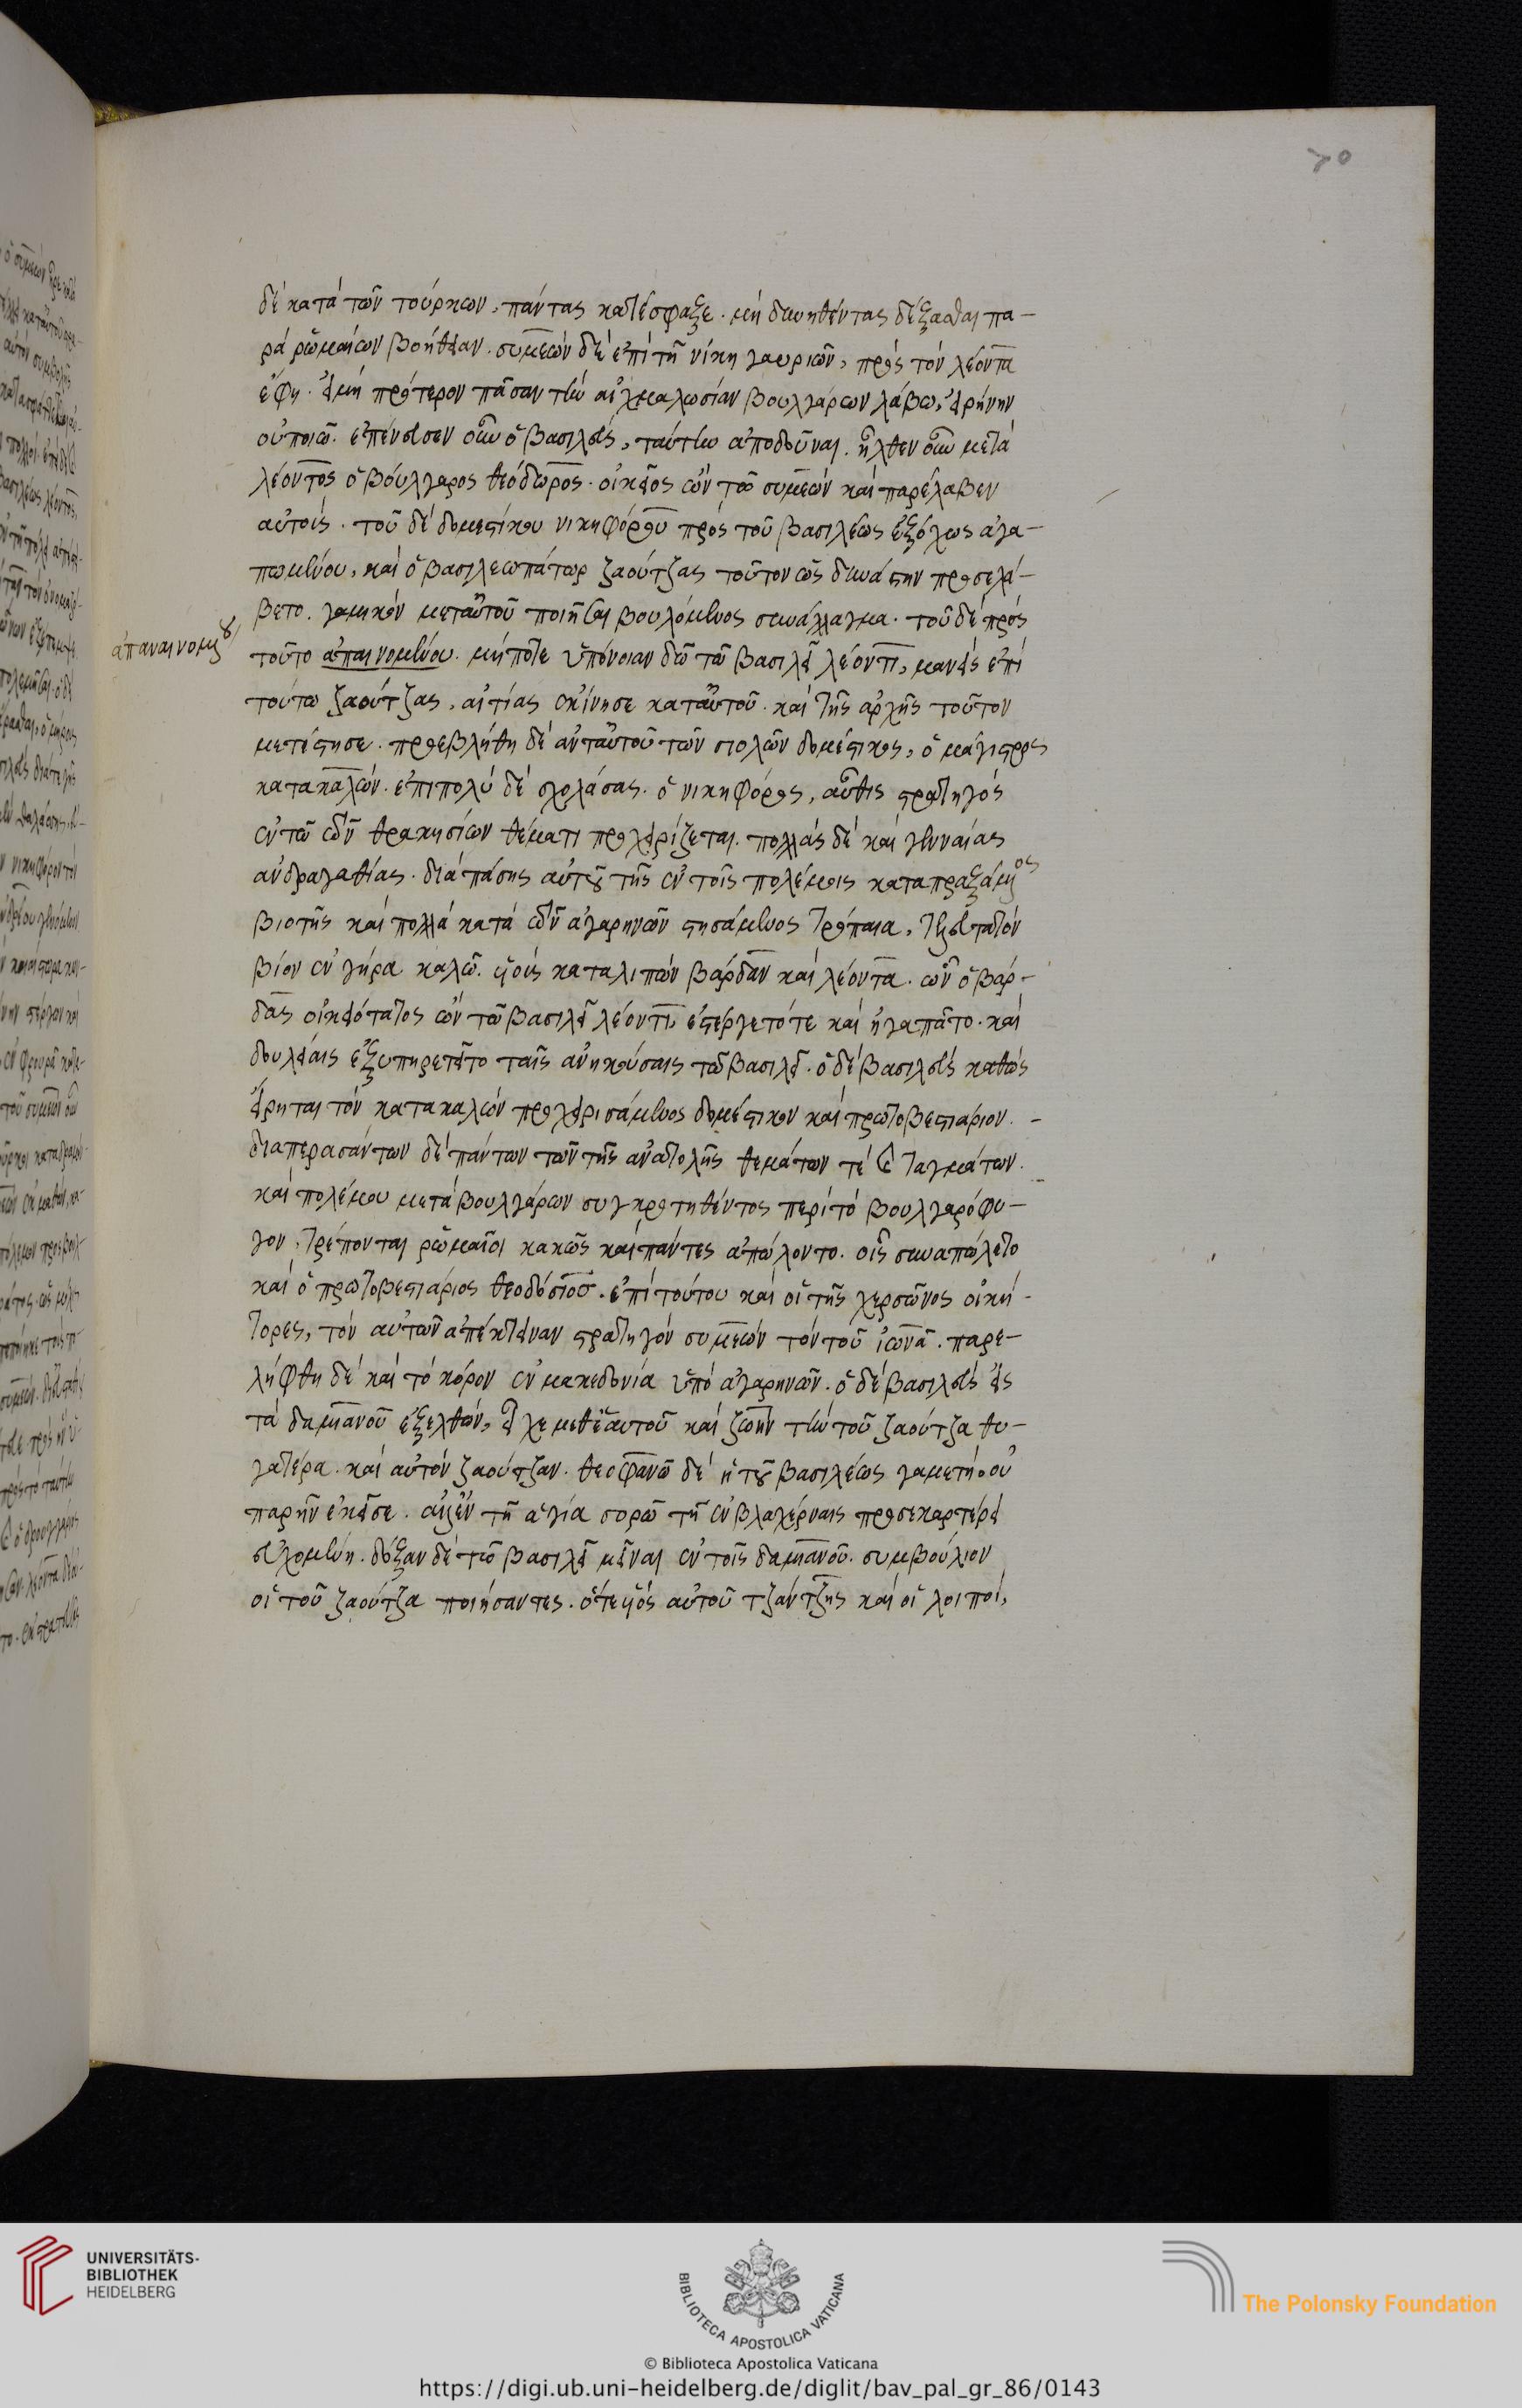 70
δὲ κατὰ τῶν τούρκων, πάντας κατέσφαξε. μὴ δυνηθέντας δέξασθαι πα-
ρὰ ῥωμαίων βοήθειαν. συμεὼν δὲ ἐπὶ τῆ νίκη γαυριῶν, πρὸς τὸν λέοντα
ἔφη. εἰ μὴ πρότερον πᾶσαν τὴν αἰχμαλωσίαν βουλγάρων λάβω, εἰρήνην
οὐ ποιῶ. ἐπένευσεν οὖν ὁ βασιλεὺς, ταύτην ἀποδοῦναι. ἦλθεν οὖν μετὰ
λέοντος ὁ βούλγαρος θεόδωρος. οἰκεῖος ὢν τῶ συμεὼν καὶ παρέλαβεν
αὐτοὺς. τοῦ δὲ δομεστίκου νικηφόρου πρὸς τοῦ βασιλέως ἐξόχως ἀγα-
πωμένου, καὶ ὁ βασιλεωπάτωρ ζαούτζας τοῦτον ὡς δυνάστην προσελά-
βετο. γαμικὸν μεταὐτοῦ ποιῆσαι βουλόμενος συνάλλαγμα. τοῦ δὲ πρὸς
ἀπαναινομένου
τοῦτο ἀπαινομένου. μήποτε ὑπόνοιαν δῶ τῶ βασιλεῖ λέοντι, μανεὶς ἐπὶ
τούτω ζαούτζας, αἰτίας ἐκίνησε καταὐτοῦ. καὶ τῆς ἀρχῆς τοῦτον
μετέστησε. προεβλήθη δὲ ἀνταὐτοῦ τῶν σχολῶν δομέστικος, ὁ μάγιστρος
κατακαλών. ἐπιπολὺ δὲ σχολάσας. ὁ νικηφόρος, αὖθις στρατηγὸς
ἐν τῶ τῶν θρακησίων θέματι προχειρίζεται. πολλὰς δὲ καὶ γενναίας
ἀνδραγαθίας. διὰ πάσης αὐτοῦ τῆς ἐν τοῖς πολέμοις καταπραξάμενος
βιοτῆς καὶ πολλὰ κατὰ τῶν ἀγαρηνῶν στησάμενος τρόπαια, τελευτᾶ τὸν
βίον ἐν γήρα καλῶ. υἱοὺς καταλιπὼν βάρδαν καὶ λέοντα. ὧν ὁ βάρ-
δας οἰκειότατος ὢν τῶ βασιλεῖ λέοντι, ἐστέργετό τε καὶ ἠγαπᾶτο. καὶ
δουλείαις ἐξυπηρετεῖτο ταῖς ἀνηκούσαις τῶ βασιλεῖ. ὁ δὲ βασιλεὺς καθὼς
εἴρηται τὸν κατακαλὼν προχειρισάμενος δομέστικον καὶ πρωτοβεστιάριον. -
διαπερασάντων δὲ πάντων τῶν τῆς ἀνατολῆς θεμάτων τὲ καὶ ταγμάτων.
καὶ πολέμου μετὰ βουλγάρων συγκροτηθέντος περὶ τὸ βουλγαρόφυ-
γον, τρέπονται ῥωμαῖοι κακῶς καὶ πάντες ἀπώλοντο. οἷς συναπώλετο
καὶ ὁ πρωτοβεστιάριος θεοδόσιος. ἐπὶ τούτου καὶ οἱ τῆς χερσῶνος οἰκή-
τορες, τὸν αὐτῶν ἀπέκτειναν στρατηγὸν συμεὼν τὸν τοῦ ἰωνᾶ. παρε-
λήφθη δὲ καὶ τὸ κόρον ἐν μακεδονία ὑπὸ ἀγαρηνῶν. ὁ δὲ βασιλεὺς εἰς
τὰ δαμιανοῦ ἐξελθὼν, εἶχε μεθἑαυτοῦ καὶ ζωὴν τὴν τοῦ ζαούτζα θυ-
γατέρα. καὶ αὐτὸν ζαούτζαν. θεοφανὼ δὲ ἡ τοῦ βασιλέως γαμετὴ, οὐ
παρῆν ἐκεῖσε. ἀλλ' ἐν τῆ ἁγία σορῶ τῆ ἐν βλαχέρναις προσεκαρτέρει
εὐχομένη. δόξαν δὲ τῶ βασιλεῖ μεῖναι ἐν τοῖς δαμιανοῦ. συμβούλιον
οἱ τοῦ ζαούτζα ποιήσαντες. ὅτε υἱὸς αὐτοῦ τζάντζης καὶ οἱ λοιποὶ,
UNIVERSITÄTS-
BIBLIOTHEK
HEIDELBERG
BIBLIOTECA APOSTOLICA VATICANA
The Polonsky Foundation
© Biblioteca Apostolica Vaticana
https://digi.ub.uni-heidelberg.de/diglit/bav_pal_gr_86/0143